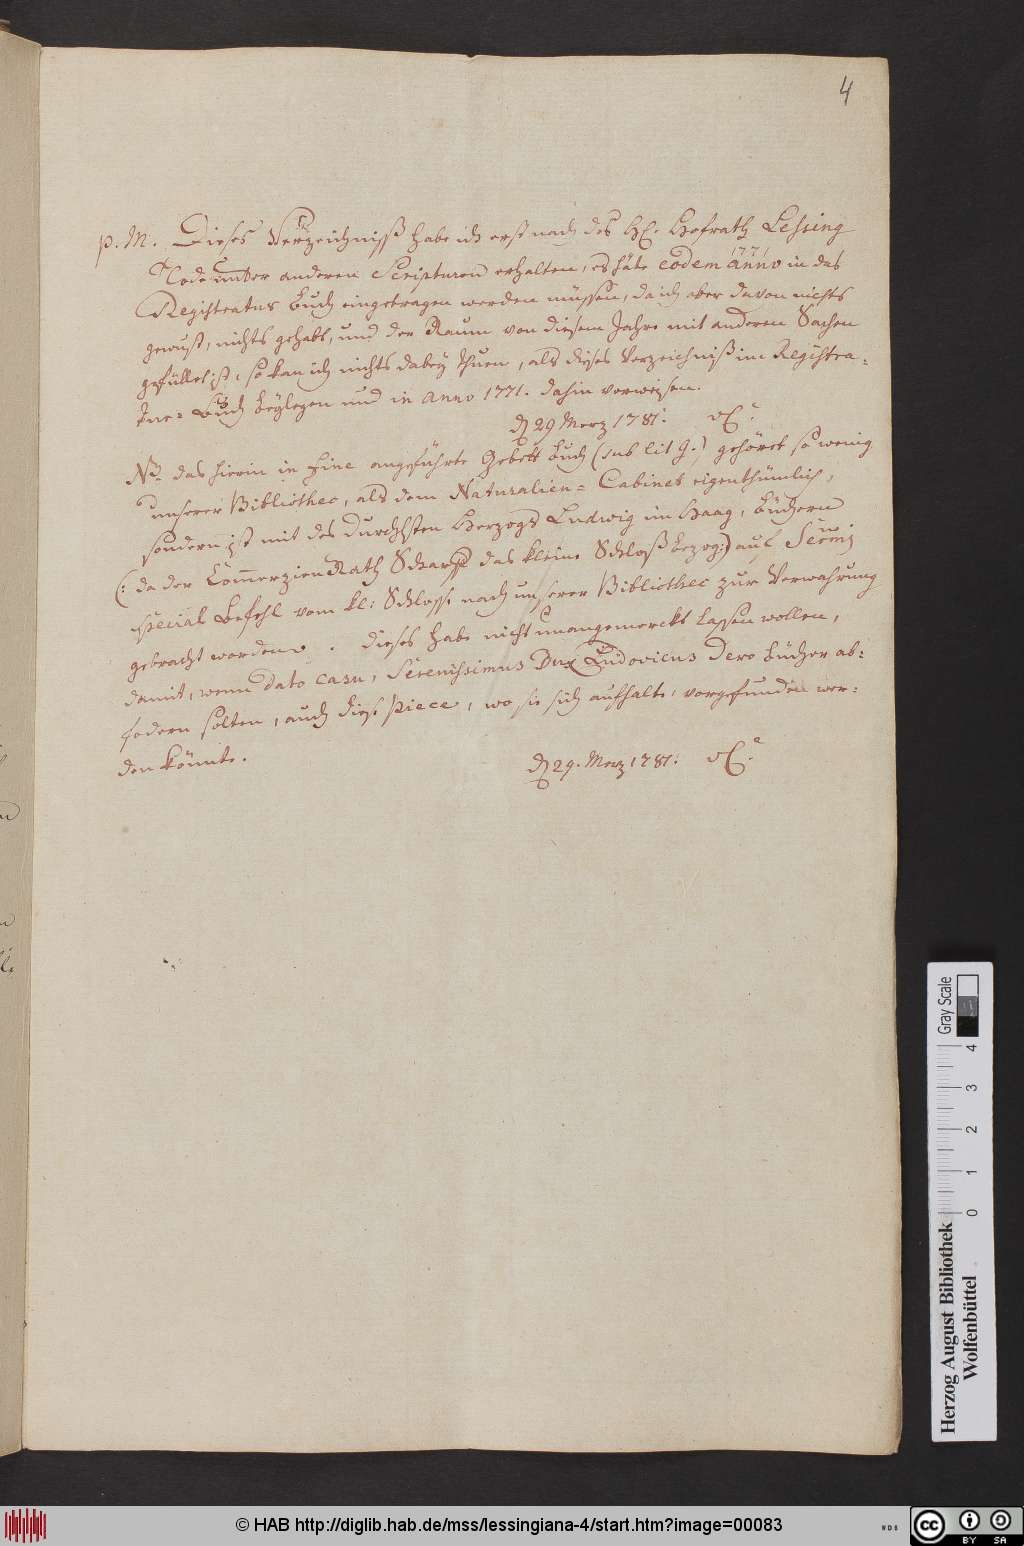 4
p. M. Dieses Verzeichniß habe ich erst nach des H. Hofrath Lessing
Tode unter anderen Scripturen erhalten, es häte eodem anno 1771 in das
Registratur Buch eingetragen werden müssen, da ich aber davon nichts
gewust, nichts gehabt, und der Raum von diesem Jahre mit anderen Sachen
gefüllet ist, so kan ich nichts dabey thuen, als dieses Verzeichniß im Registra-
Buch beylegen und in anno 1771. dahin verweisen.
29 Merz 1781.
das hierin in fine angeführte Gebett Buch (sub lit g.) gehöret so wenig
unserer Bibliothec, als dem Naturalien-Cabinet eigenthümlich,
sondern ist mit des Durchlsten Herzogs Ludwig im Haag, Büchern
(: da der Commerzien Rath Scharff das kleine Schloß bezog:) auf Sermi
special Befehl vom kl: Schlosse nach unserer Bibliothec zur Verwahrung
gebracht worden. Dieses habe nicht unangemerckt lassen wollen,
damit, wenn dato casu, Serenissimus Dux Ludovicus Dero Bücher ab-
fodern solten, auch diese Piece, wo sie sich aufhalte, vorgefunden wer-
den könnte.
29. Merz 1781.
Herzog August Bibliothek
Wolfenbüttel
0 1 2 3 4
Gray Scale
© HAB http://diglib.hab.de/mss/lessingiana-4/start.htm?image=00083
WDB
cc BY SA